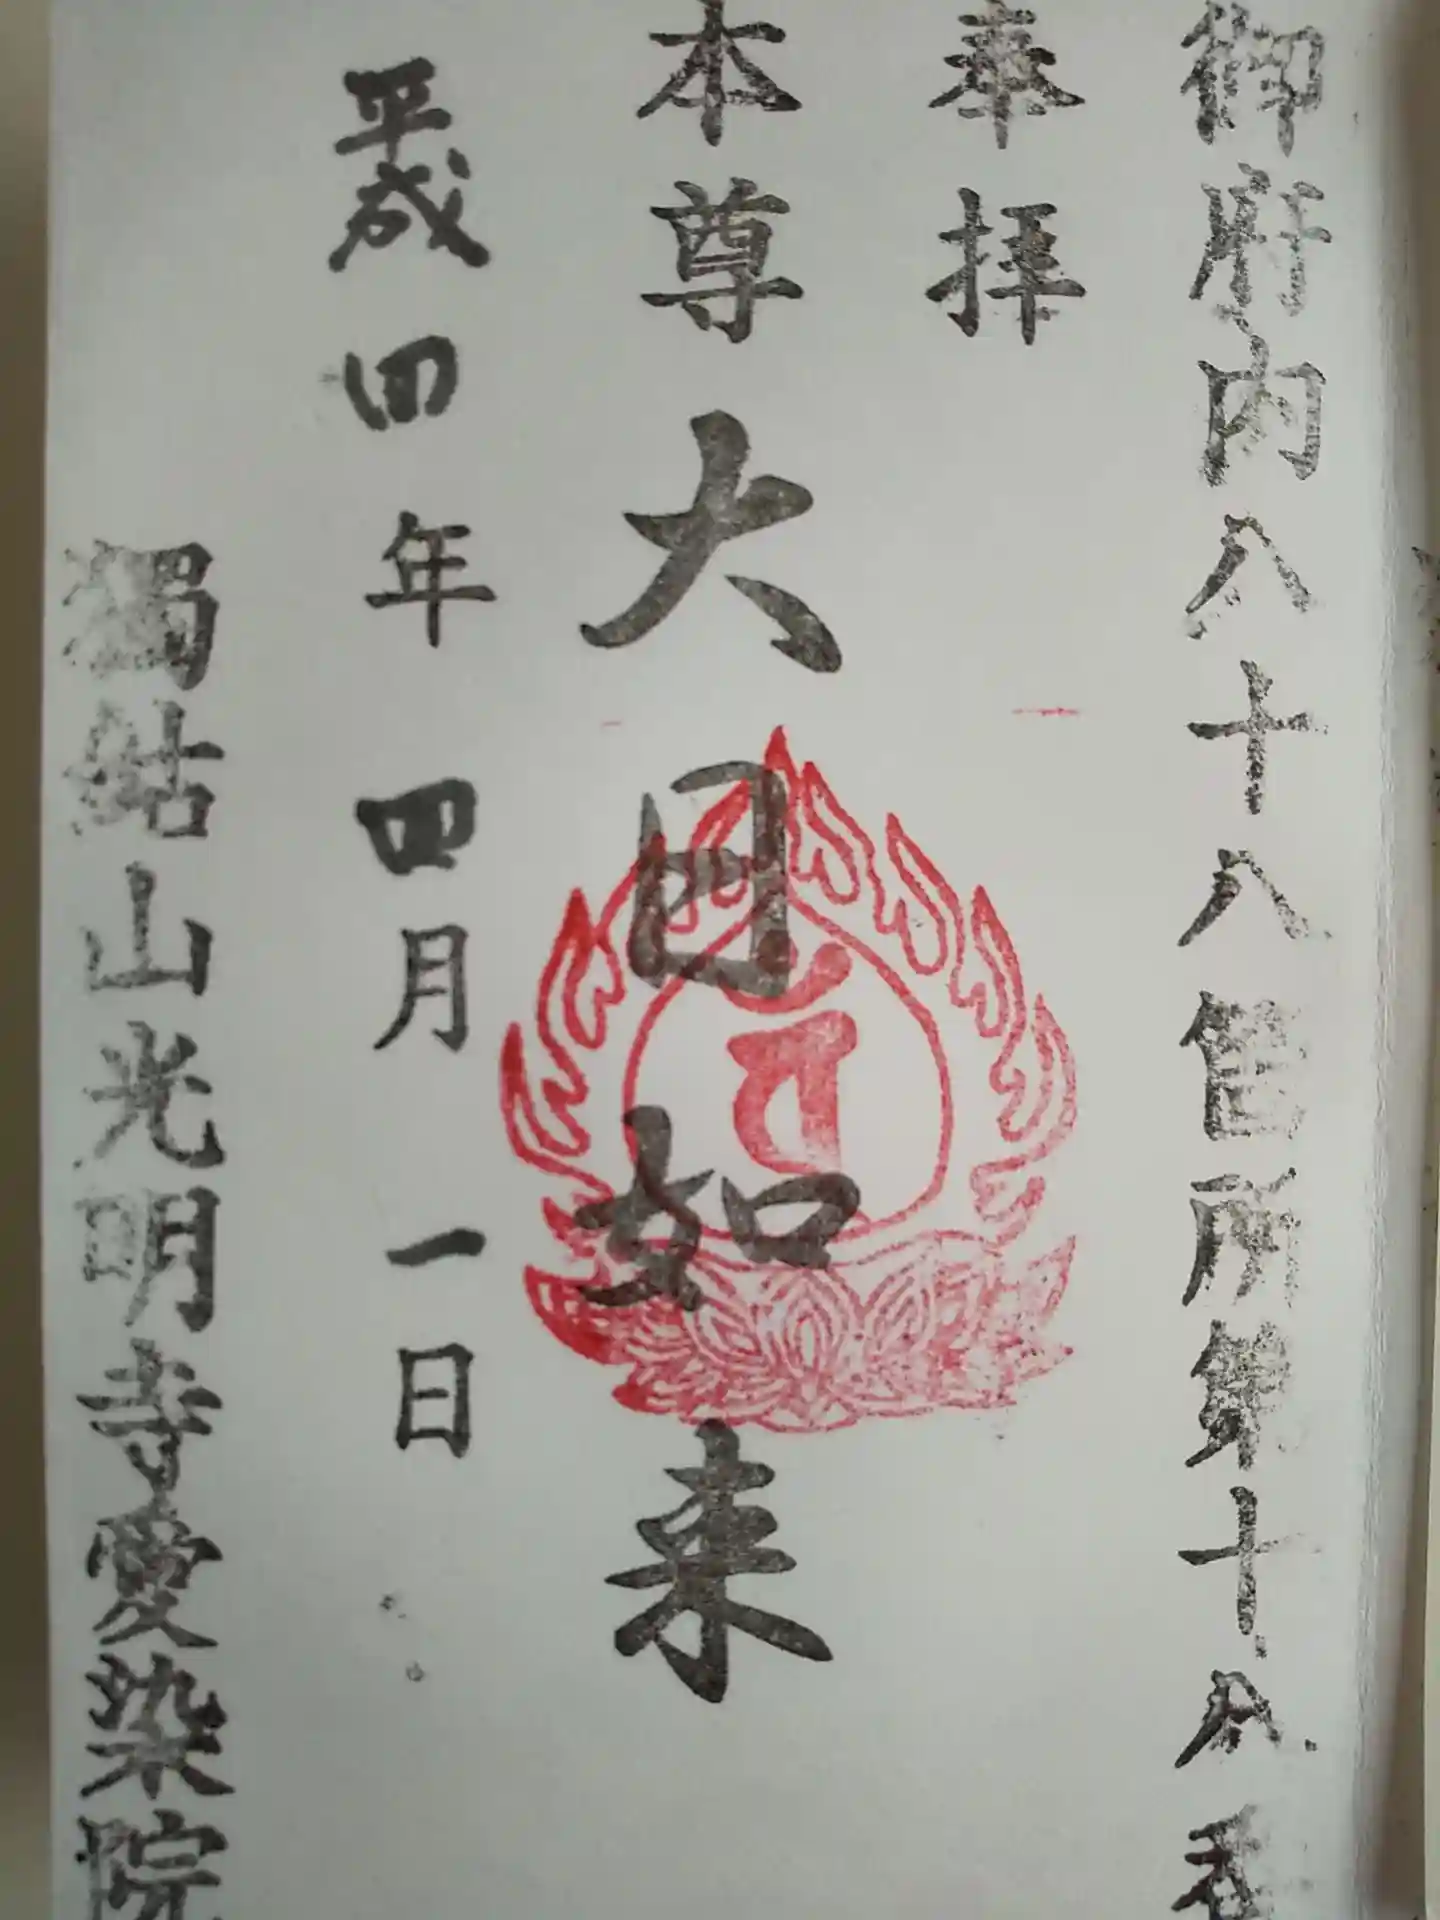 御府内八十八箇所第十八番
奉拝
本尊大日如来
平成四年四月一日
獨鈷山光明寺愛染院